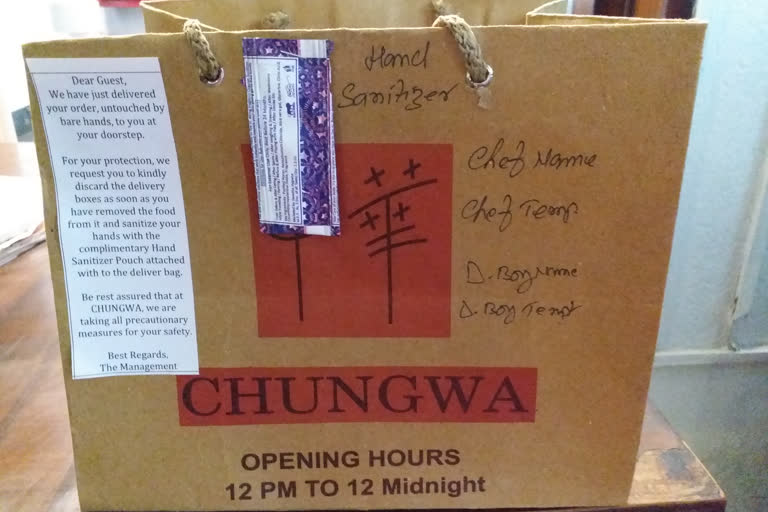 Dear Guest,
We have just delivered
your order, untouched by
bare hands, to you at
your doorstep.
For your protection, we
request you to kindly
discard the delivery
boxes as soon as you
have removed the food
from it and sanitize your
hands with the
complimentary Hand
Sanitizer Pouch attached
with to the deliver bag.
Be rest assured that at
CHUNGWA, we are
taking all precautionary
measures for your safety.
Best Regards,
The Management
Hand
Sanitizer
Chef Name
Chef Temp
D. Boy Name
D. Boy Tempt
華
CHUNGWA
OPENING HOURS
12 PM TO 12 Midnight